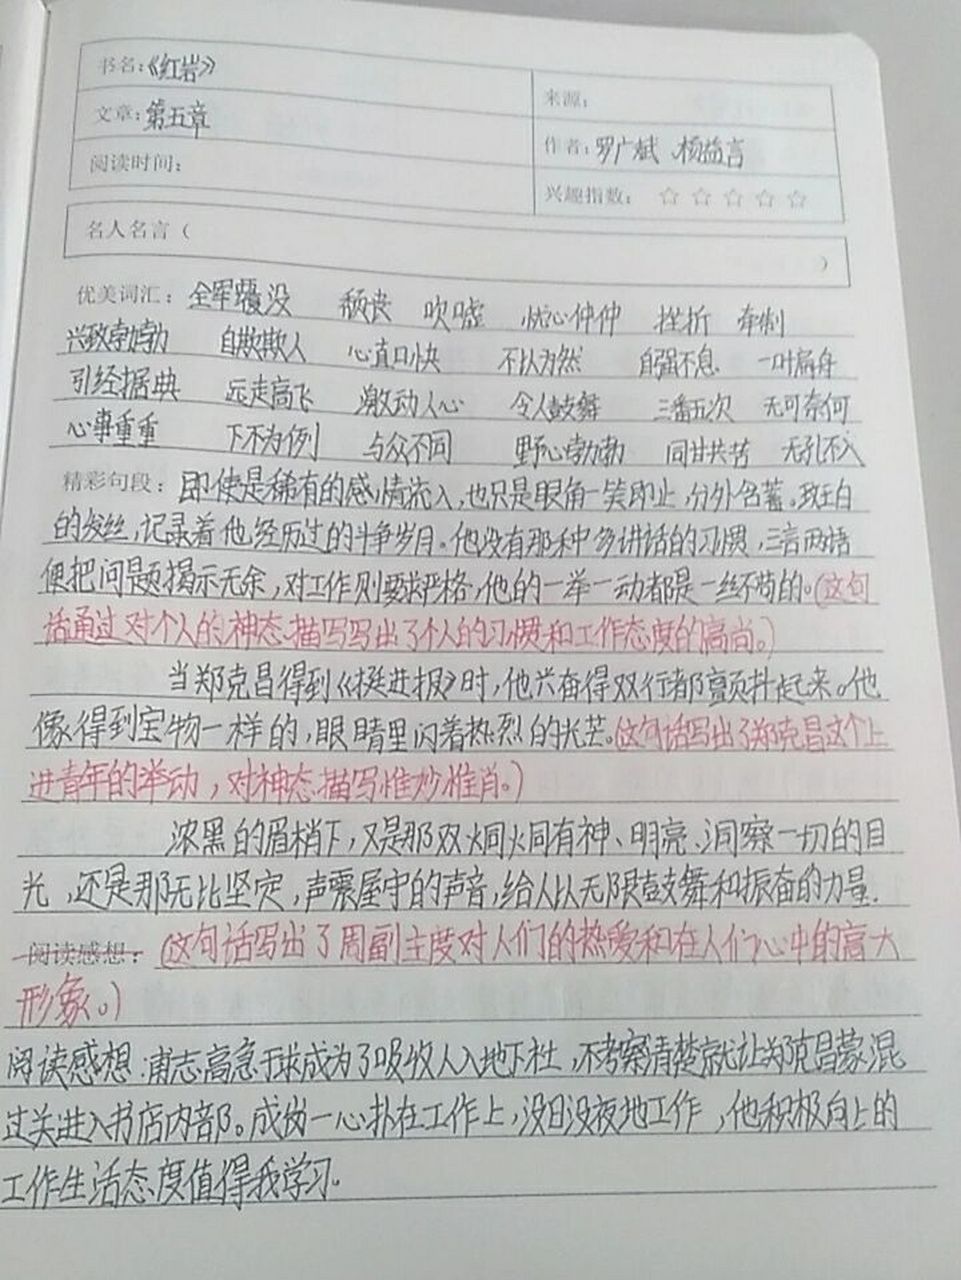 书名:《红岩》
来源:
文章:第五章
作者:罗广斌、杨益言
阅读时间:
兴趣指数: ☆ ☆ ☆ ☆ ☆
名人名言( )
优美词汇: 全军覆没 颓丧 吹嘘 忧心忡忡 挫折 牵制
兴致勃勃 自欺欺人 心直口快 不以为然 自强不息 一叶扁舟
引经据典 远走高飞 激动人心 令人鼓舞 三番五次 无可奈何
心事重重 下不为例 与众不同 野心勃勃 同甘共苦 无孔不入
精彩句段: 即使是稀有的感情流入,也只是眼角一笑即止,分外含蓄。斑白
的发丝,记录着他经历过的斗争岁月。他没有那种多讲话的习惯,三言两语
便把问题揭示无余,对工作则要求严格,他的一举一动都是一丝不苟的。(这句
话通过对个人的神态描写写出了个人的习惯和工作态度的高尚。)
当郑克昌得到《挺进报》时,他兴奋得双行都颤抖起来。他
像得到宝物一样的,眼睛里闪着热烈的光芒。(这句话写出了郑克昌这个上
进青年的举动,对神态描写惟妙惟肖。)
浓黑的眉梢下,又是那双炯炯有神、明亮、洞察一切的目
光,还是那无比坚定,声震屋宇的声音,给人以无限鼓舞和振奋的力量.
阅读感想: (这句话写出了周副主度对人们的热爱和在人们心中的高大
形象。)
阅读感想:甫志高急于球成为了吸收人入地下社,不考察清楚就让郑克昌蒙混
过关进入书店内部。成岗一心扑在工作上,没日没夜地工作,他积极向上的
工作生活态度值得我学习.